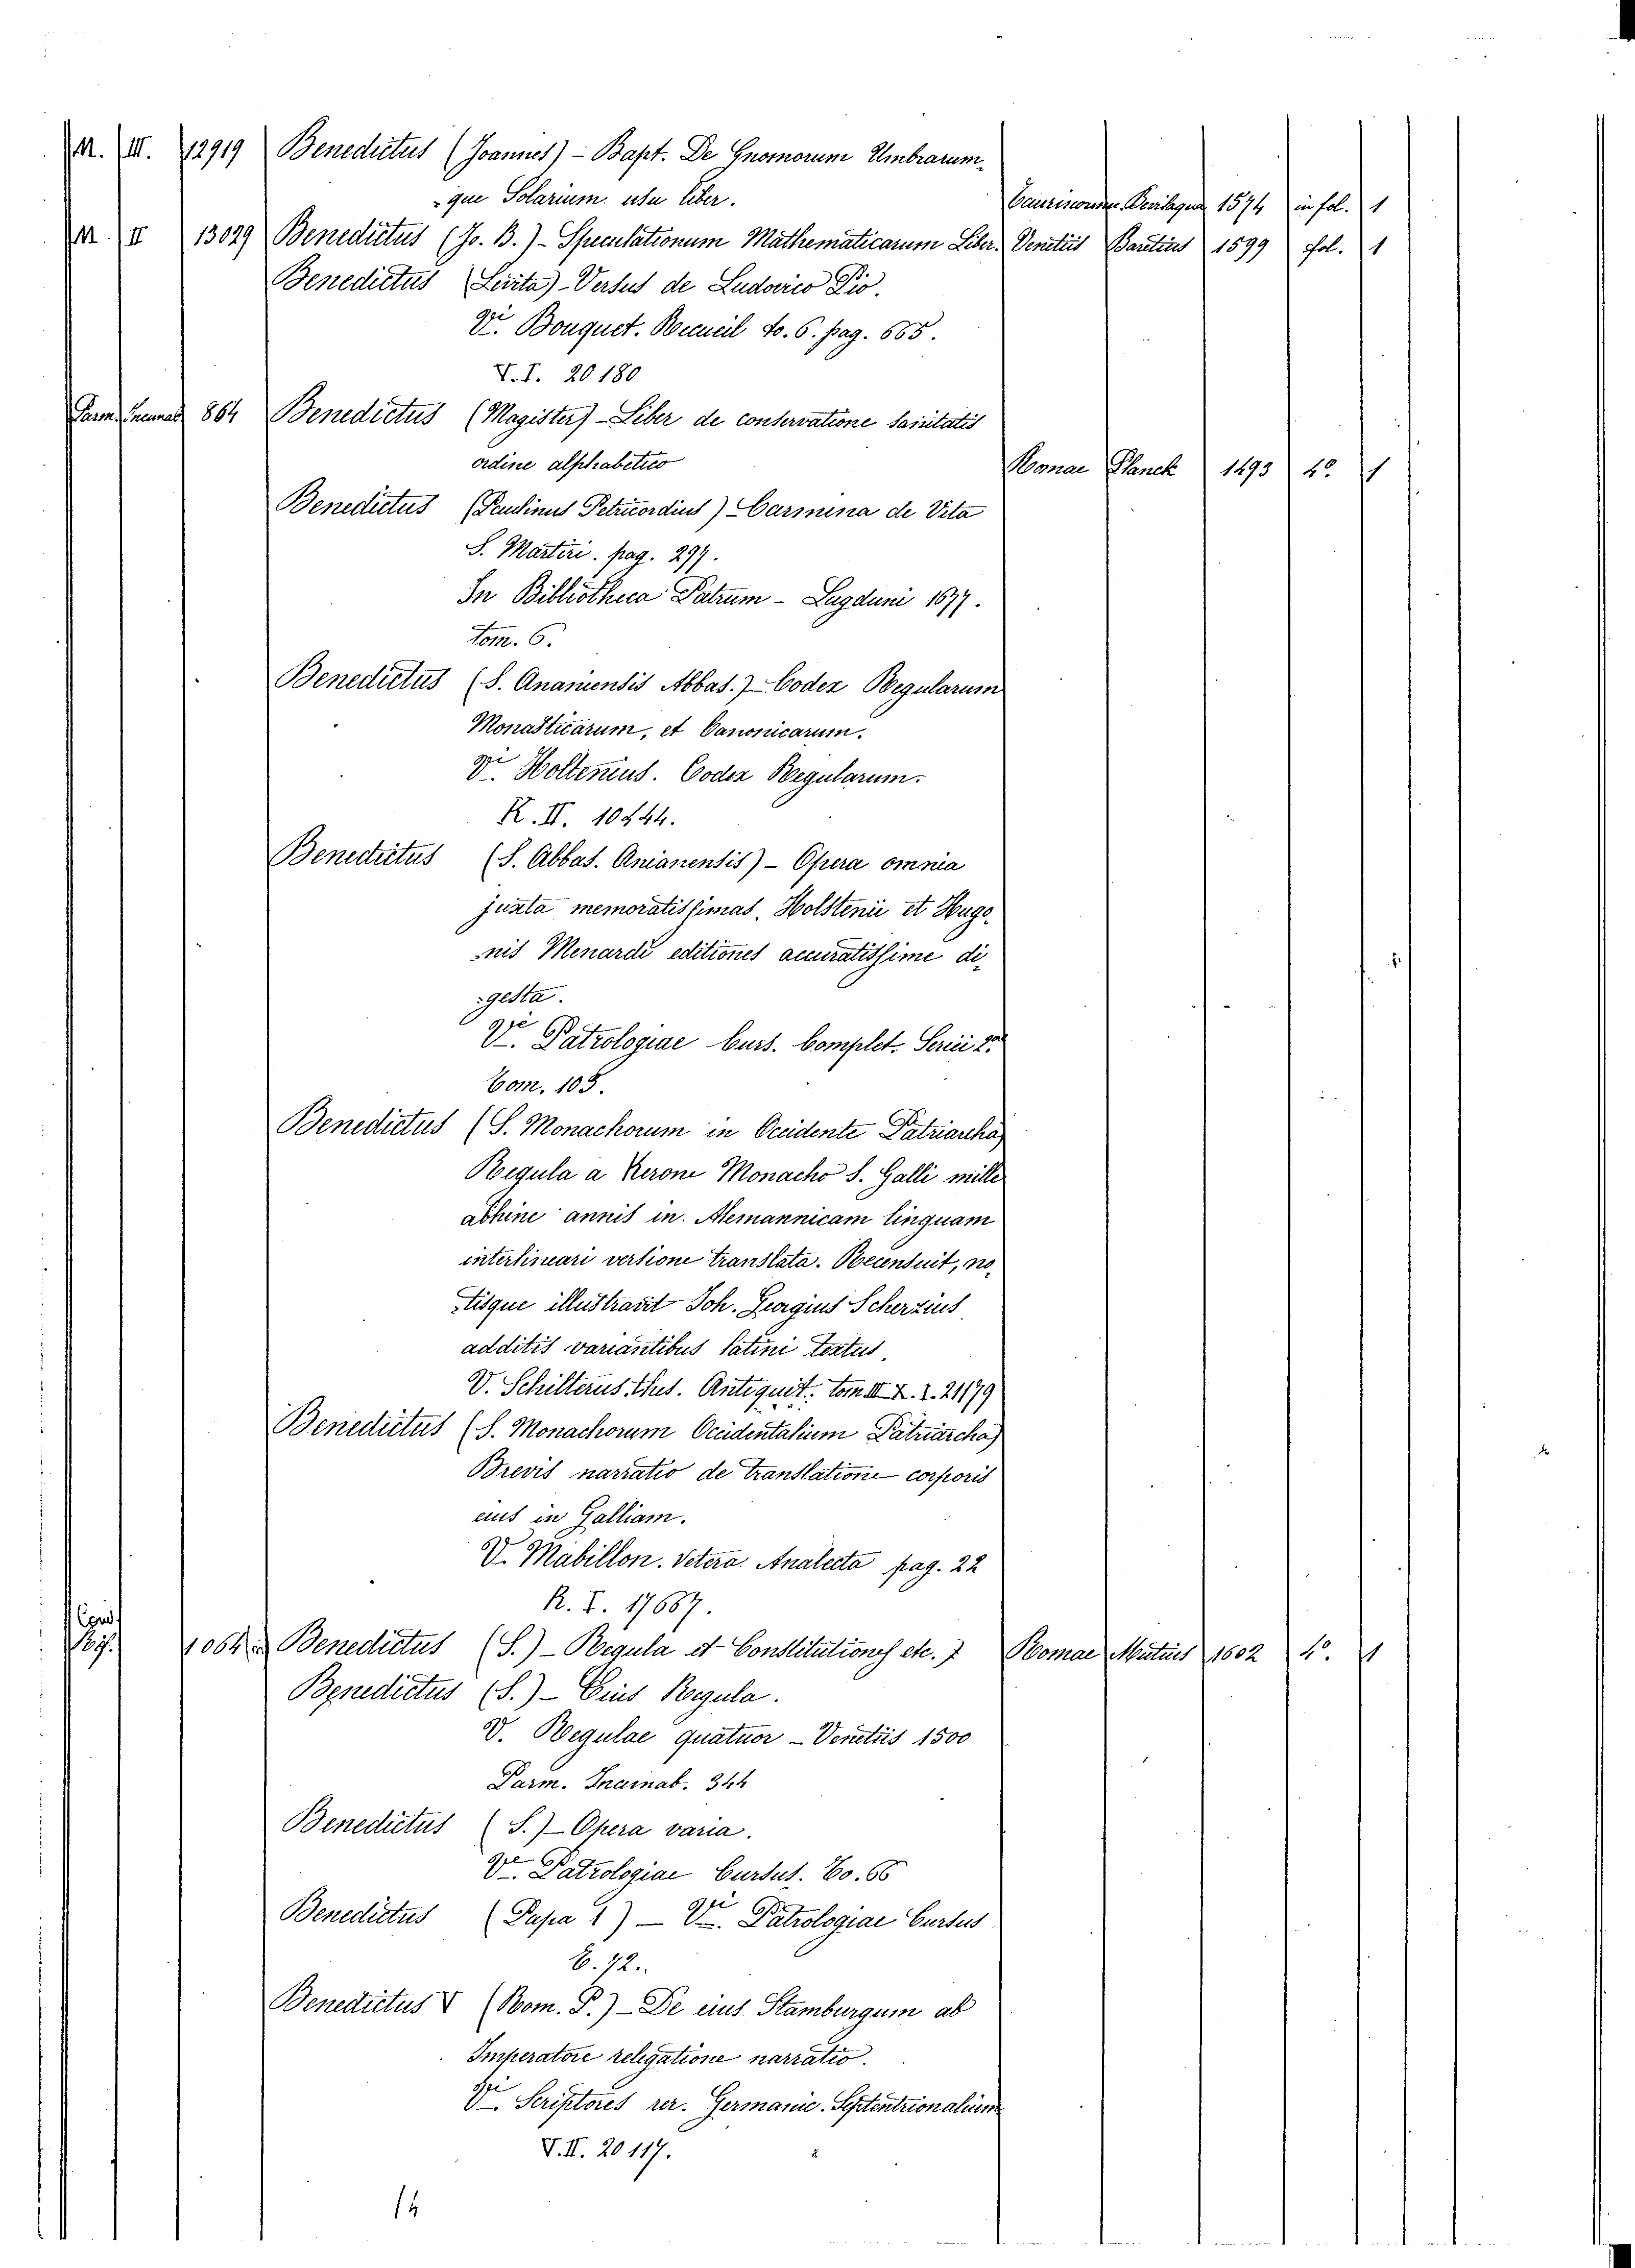 M. III. 12919 Benedictus (Joannes) - Bapt. De Gnomorum Umbrarum-
-que Solarium usu liber. 1574 in fol. 1
M. II 13029 Benedictus (Jo. B.) - Speculationum Mathematicarum Liber. Venetiis 1599 fol. 1
Benedictus (Levita) - Versus de Ludovico Pio.
Vi. Bouquet. Recueil to. 6. pag. 665.
V. I. 20180
Parm. 864 Benedictus (Magister) - Liber de conservatione sanitatis
ordine alphabetico Romae Planck 1493 4º 1
Benedictus (Paulinus Petricordius) Carmina de Vita
S. Martiri. pag. 297.
In Bibliotheca Patrum - Lugduni 1677.
tom. 6.
Benedictus (S. Ananiensis Abbas.) - Codex Regularum
Monasticarum, et Canonicarum.
Vi. Holtenius. Codex Regularum.
K. II. 10444.
Benedictus (S. Abbas. Anianensis) - Opera omnia
juxta memoratissimas, Holstenii et Hugo-
-nis Menardi editiones accuratissime di-
-gesta.
Ve. Patrologiae Curs. Complet. Serii 2.ae
Tom. 103.
Benedictus (S. Monachorum in Occidente Patriarcha)
Regula a Kerone Monacho S. Galli mille
abhinc annis in Alemannicam linguam
interlineari versione translata. Recensuit, no-
-tisque illustravit Joh. Georgius Scherzius
additis variantibus latini textus.
V. Schilterus thes. Antiquit. tom III X. I. 21179
Benedictus (S. Monachorum Occidentalium Patriarcha)
Brevis narratio de translatione corporis
eius in Galliam.
V. Mabillon. Vetera Analecta pag. 22
R. I. 17667.
1064 Benedictus (S.) - Regula et Constitutiones etc. Romae Mutius 1602 4º. 1
Benedictus (S.) - Eius Regula.
V. Regulae quatuor - Venetiis 1500
Parm. Incunab. 344
Benedictus (S.) - Opera varia.
Ve. Patrologiae Cursus. To. 66
Benedictus (Papa 1) - Vi. Patrologiae Cursus
T. 72.
Benedictus V (Rom. P.) - De eius Stamburgum ab
Imperatore relegatione narratio.
Vi. Scriptores rer. Germanic. Septentrionalium
V. II. 20117.